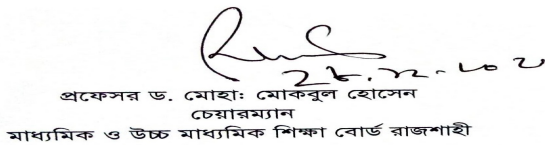 প্রফেসর ড. মোহাঃ মোকবুল হোসেন
চেয়ারম্যান
মাধ্যমিক ও উচ্চ মাধ্যমিক শিক্ষা বোর্ড রাজশাহী